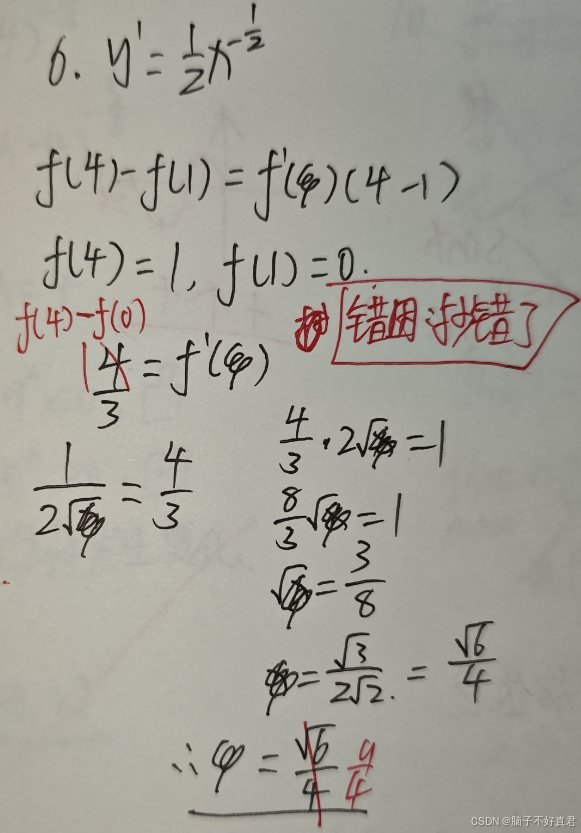 6. y' = 1/2 x^(-1/2)
f(4)-f(1) = f'(φ)(4-1)
f(4)=1, f(1)=0.
f(4)-f(0)
错因:抄错了
1 4/3 = f'(φ)
4/3 · 2√φ = 1
1/(2√φ) = 4/3
8/3 √φ = 1
√φ = 3/8
φ = √3/(2√2) = √6/4
∴ φ = √6/4 9/4
CSDN @脑子不好真君